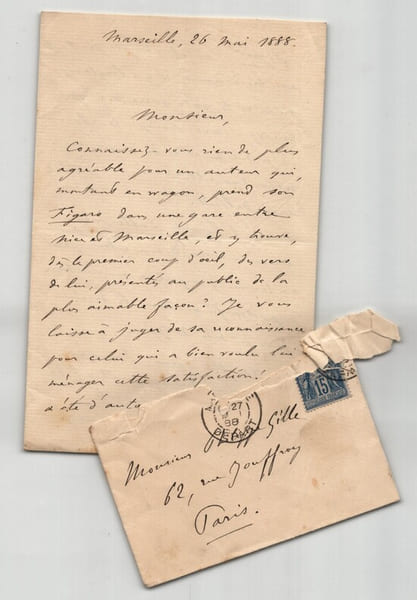 Marseille, 26 Mai 1888.
Monsieur,
Connaissez-vous rien de plus
agréable pour un auteur qui,
montant en wagon, prend son
Figaro dans une gare entre
Nice et Marseille, et y trouve,
dès le premier coup d'oeil, des vers
de lui, présentés au public de la
plus aimable façon? Je vous
laisse à juger de sa reconnaissance
pour celui qui a bien voulu lui
ménager cette satisfaction
27
88
DEPART
15
Monsieur Gille
62, rue Jouffroy
Paris.